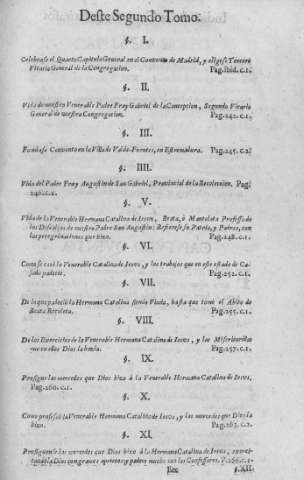 Deste Segundo Tomo:
§. I.
Celebrase el Quarto Capitulo General en el Convento de Madrid, y eligese Tercero
Vicario General de la Congregacion. Pag. ibid. c. 1.
§. II.
Vida de nuestro Venerable Padre Fray Gabriel de la Concepcion, Segundo Vicario
General de nuestra Congregacion. Pag. 242. c. 1.
§. III.
Fundase Convento en la Villa de Valde-Fuentes, en Estremadura. Pag. 245. c. 2.
§. IIII.
Vida del Padre Fray Augustin de San Gabriel, Provincial de la Recoleccion. Pag.
246. c. 1.
§. V.
Vida de la Venerable Hermana Catalina de Iesvs, Beata, ò Mantelata Professa de
los Descalços de nuestro Padre San Augustin: Refierese su Patria, y Padres, con
las peregrinaciones que hizo. Pag. 248. c. 1.
§. VI.
Como se casò la Venerable Catalina de Iesvs, y los trabajos que en esse estado de Ca-
sada padeciò. Pag. 252. c. 1.
§. VII.
De lo que padeciò la Hermana Catalina siendo Viuda, hasta que tomò el Abito de
Beata Recoleta. Pag. 255. c. 1.
§. VIII.
De los Exercicios de la Venerable Hermana Catalina de Iesvs, y las Misericordias
que en ellos Dios la hazia. Pag. 257. c. 1.
§. IX.
Prosigue las mercedes que Dios hizo à la Venerable Hermana Catalina de Iesvs,
Pag. 260. c. 1.
§. X.
Como professò la Venerable Hermana Catalina de Iesvs, y las mercedes que Dios la
hizo. Pag. 263. c. 2.
§. XI.
Prosiguense las mercedes que Dios hizo à la Hermana Catalina de Iesvs, exerci-
tandola Dios con graves aprietos, y padece mucho con los Confessores. P. 266. c. 1.
§. XII.